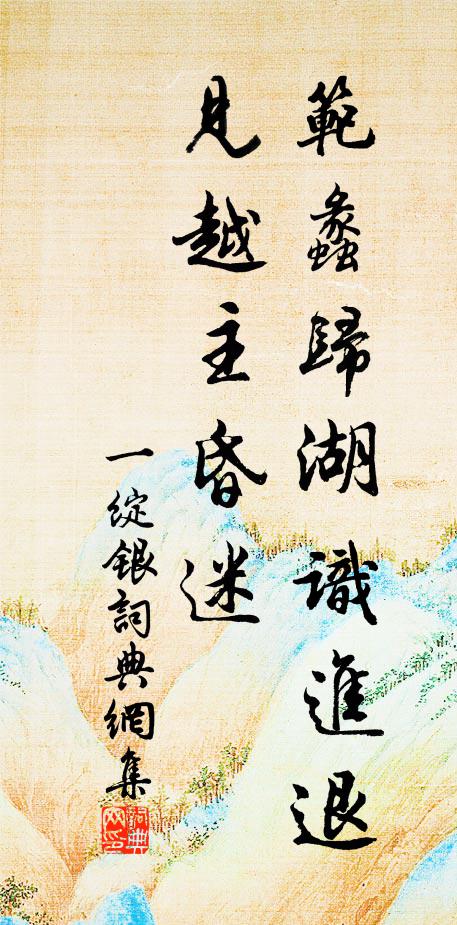 範蠡歸湖識進退
見越主昏迷
一綻銀詞典網集
詞典